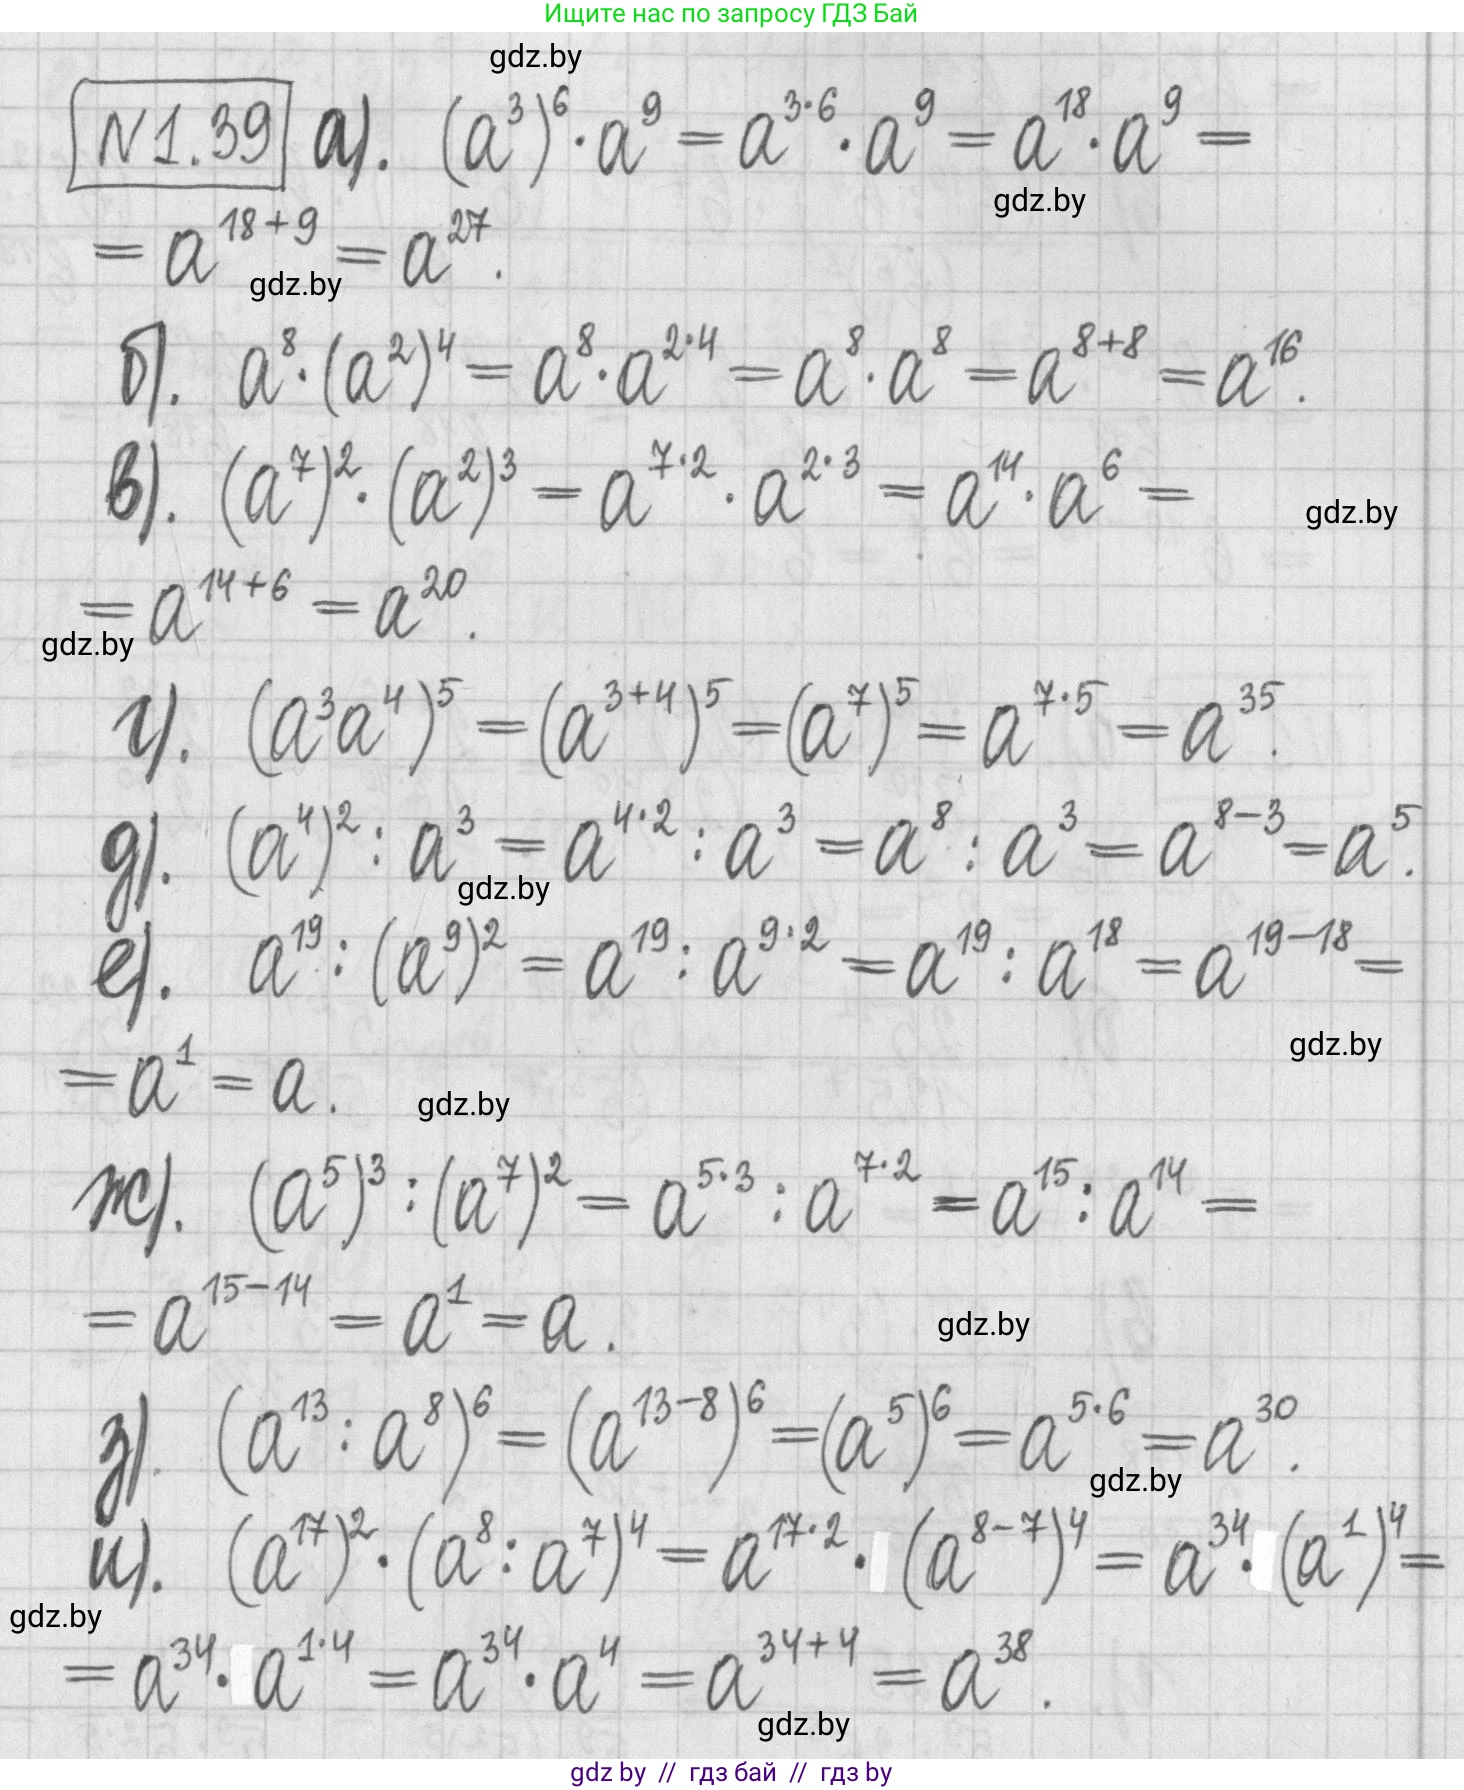 Ищите нас по запросу ГДЗ Бай
gdz.by
N1.39 а). (a³)⁶ · a⁹ = a³·⁶ · a⁹ = a¹⁸ · a⁹ =
gdz.by
= a¹⁸⁺⁹ = a²⁷.
gdz.by
б). a⁸ · (a²)⁴ = a⁸ · a²·⁴ = a⁸ · a⁸ = a⁸⁺⁸ = a¹⁶.
в). (a⁷)² · (a²)³ = a⁷·² · a²·³ = a¹⁴ · a⁶ =
gdz.by
= a¹⁴⁺⁶ = a²⁰.
gdz.by
г). (a³a⁴)⁵ = (a³⁺⁴)⁵ = (a⁷)⁵ = a⁷·⁵ = a³⁵.
д). (a⁴)² : a³ = a⁴·² : a³ = a⁸ : a³ = a⁸⁻³ = a⁵.
gdz.by
е). a¹⁹ : (a⁹)² = a¹⁹ : a⁹·² = a¹⁹ : a¹⁸ = a¹⁹⁻¹⁸ =
gdz.by
= a¹ = a.
gdz.by
ж). (a⁵)³ : (a⁷)² = a⁵·³ : a⁷·² = a¹⁵ : a¹⁴ =
= a¹⁵⁻¹⁴ = a¹ = a.
gdz.by
з). (a¹³ : a⁸)⁶ = (a¹³⁻⁸)⁶ = (a⁵)⁶ = a⁵·⁶ = a³⁰.
gdz.by
и). (a¹⁷)² · (a⁸ : a⁷)⁴ = a¹⁷·² · (a⁸⁻⁷)⁴ = a³⁴ · (a¹)⁴ =
gdz.by
= a³⁴ · a¹·⁴ = a³⁴ · a⁴ = a³⁴⁺⁴ = a³⁸.
gdz.by
gdz by // гдз бай // гдз by